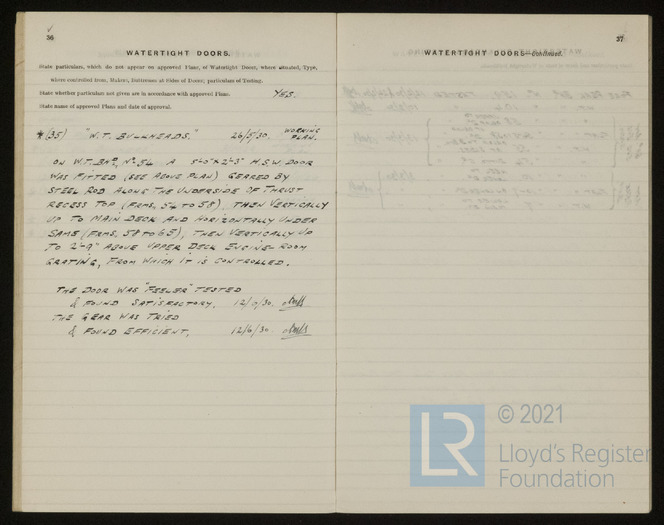 36
WATERTIGHT DOORS.
State particulars, which do not appear on approved Plans, of Watertight Doors, where situated, Type,
where controlled from, Makers, Thickness at Sides of Doors; particulars of Testing.
State whether particulars not given are in accordance with approved Plans. YES.
State name of approved Plans and date of approval.
* (35) "W.T. BULKHEADS." 26/5/30. WORKING PLAN.
ON W.T. BHD, Nº 54 A 5'-0" x 2'-3" H.S.W. DOOR
WAS FITTED (SEE ABOVE PLAN) GEARED BY
STEEL ROD ALONG THE UNDERSIDE OF THRUST
RECESS TOP (FRMS, 54 TO 58), THEN VERTICALLY
UP TO MAIN DECK AND HORIZONTALLY UNDER
SAME (FRMS, 58 TO 65), THEN VERTICALLY UP
TO 2'-9" ABOVE UPPER DECK ENGINE ROOM
GRATING, FROM WHICH IT IS CONTROLLED.
THE DOOR WAS "FEELER" TESTED
& FOUND SATISFACTORY.
THE GEAR WAS TRIED
& FOUND EFFICIENT, 12/6/30
37
WATERTIGHT DOORS—continued.
LR
© 2021
Lloyd's Register
Foundation